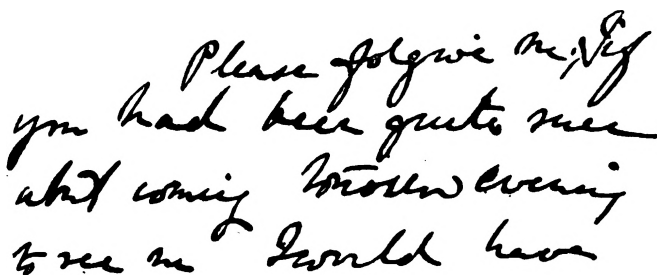 Please forgive me, if
you had been quite sure
about coming tomorrow evening
to see me I would have